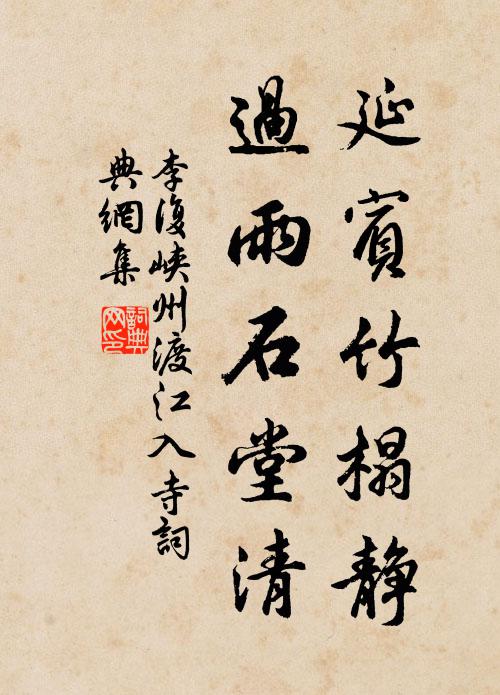 延賓竹榻静
過雨石堂清
李復峽州渡江入寺詞
典網集
詞典
网印